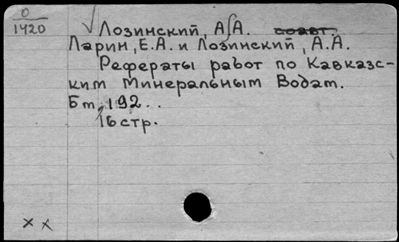 0
1420
Лозинский, А.А. соавт.
Ларин, Е.А. и Лозинский, А.А.
Рефераты работ по Кавказс-
ким Минеральным Водам.
Б.m, 192..
16 стр.
х х